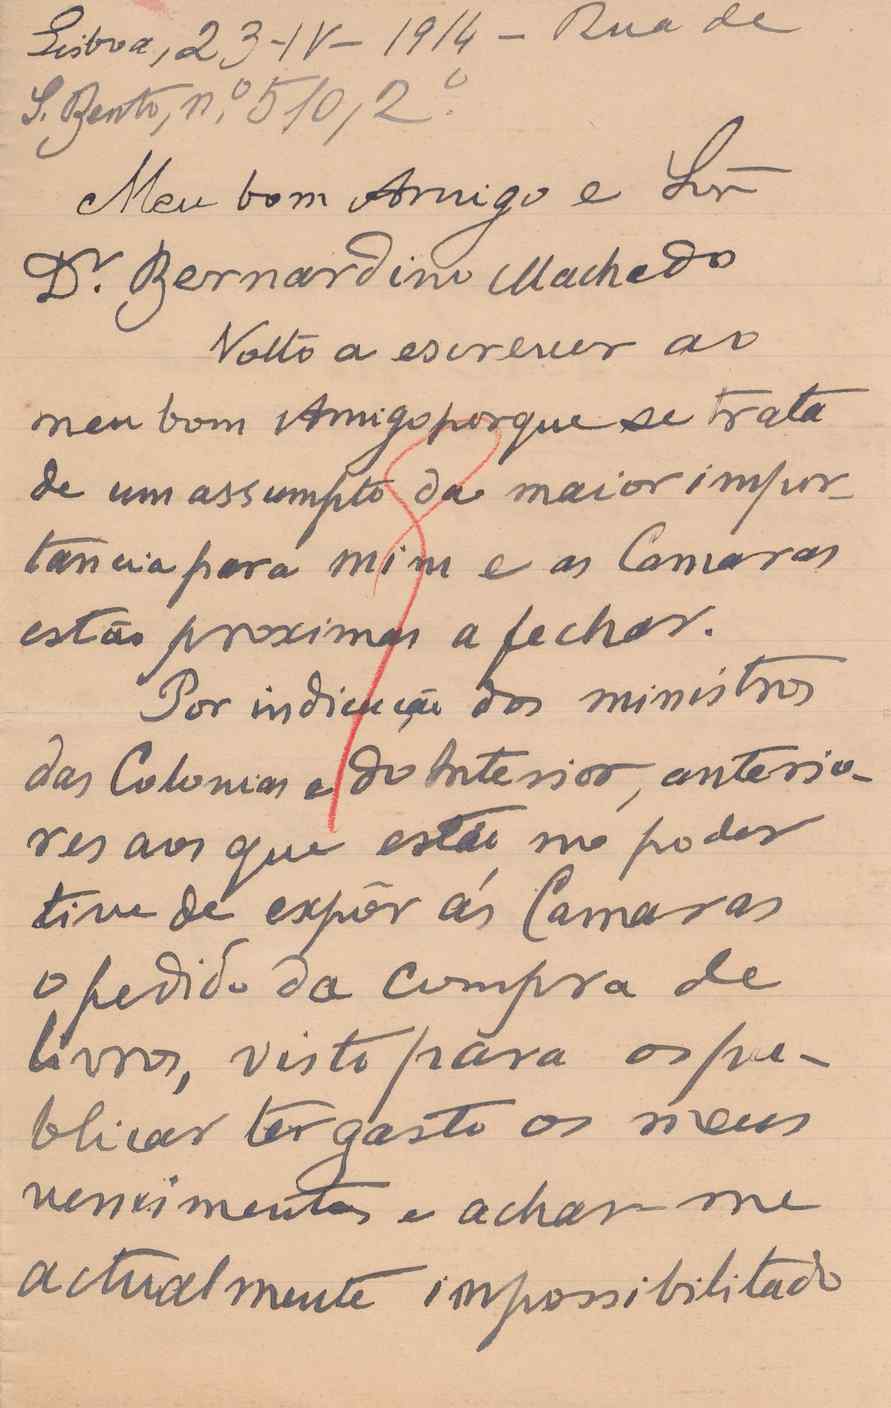 Lisboa, 23-IV-1914 - Rua de
S. Bento, n.º 510, 2º.
Meu bom Amigo e Snr
Dr. Bernardino Machado
Volto a escrever ao
meu bom Amigo porque se trata
de um assumpto da maior impor-
tancia para mim e as Camaras
estão proximas a fechar.
Por indicação dos ministros
das Colonias e do Interior, anterio-
res aos que estão no poder
tive de expôr ás Camaras
o pedido da compra de
livros, visto para os pu-
blicar ter gasto os meus
vencimentos e achar-me
actualmente impossibilitado